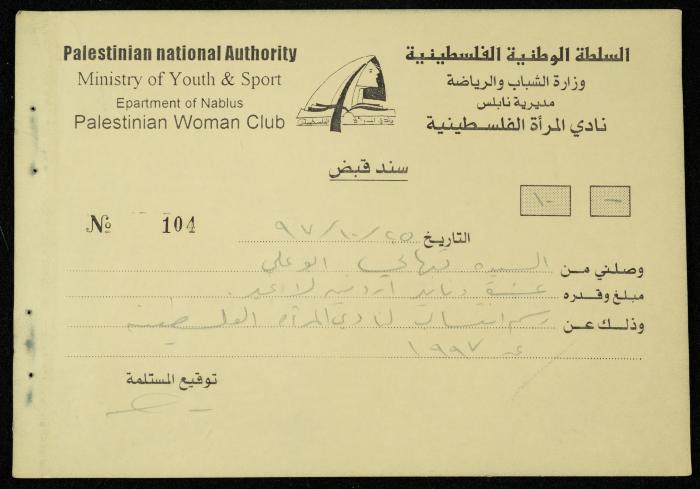 Palestinian national Authority
Ministry of Youth & Sport
Epartment of Nablus
Palestinian Woman Club
السلطة الوطنية الفلسطينية
وزارة الشباب والرياضة
مديرية نابلس
نادي المرأة الفلسطينية
سند قبض
١٠ —
№ 104
التاريخ ٩٧/١٠/٢٥
وصلني من السيده تهاني ابو علي
مبلغ وقدره عشرة دنانير اردنيه لا غير.
وذلك عن رسم انتساب لنادي المرأه الفلسطينيه
عام ١٩٩٧
توقيع المستلمة